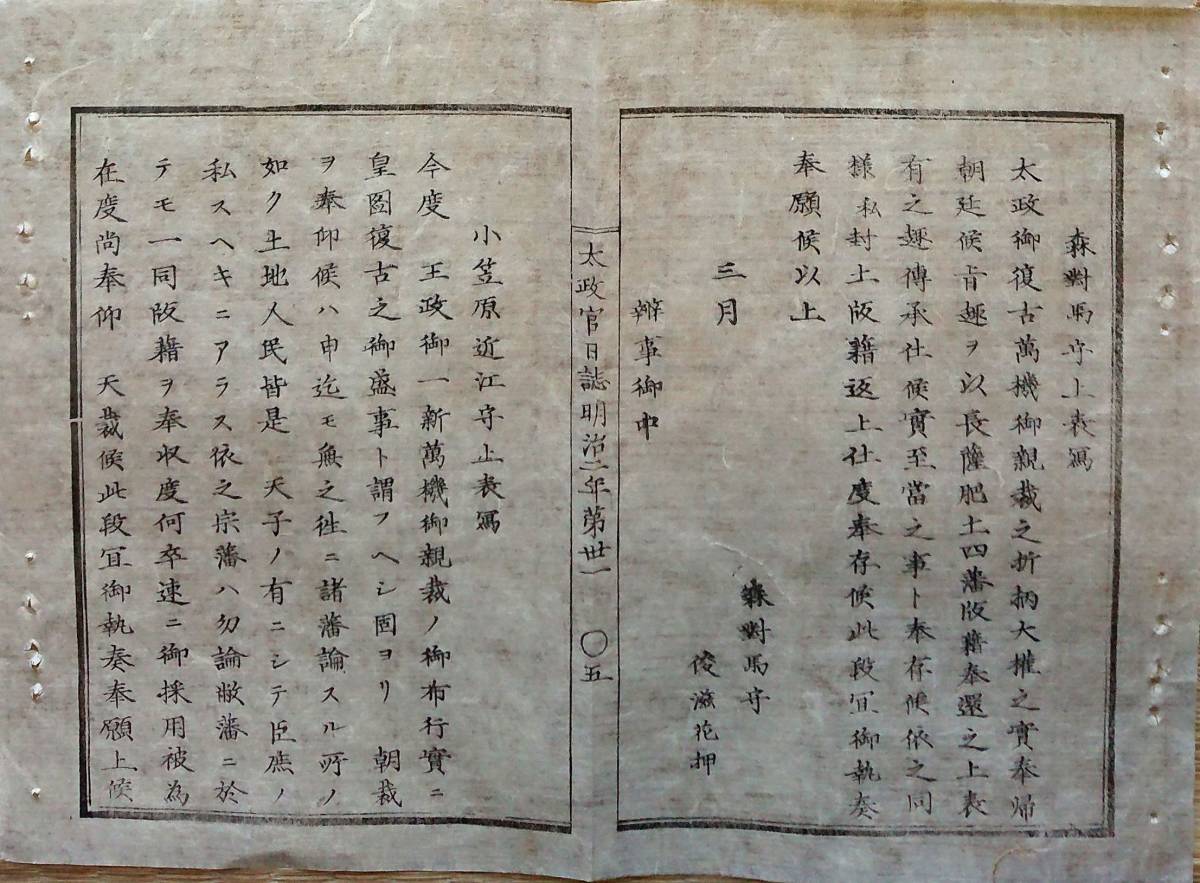 森對馬守上表寫
太政御復古萬機御親裁之折柄大權之實奉歸
朝廷候旨趣ヲ以長薩肥土四藩版籍奉還之上表
有之趣傳承仕候實至當之事ト奉存候依之同
樣私封土版籍返上仕度奉存候此段宜御執奏
奉願候以上
三月
森對馬守
俊滋花押
辨事御中
太政官日誌明治二年第卅一 〇五
小笠原近江守上表寫
今度 王政御一新萬機御親裁ノ御布行實ニ
皇國復古之御盛事ト謂フヘシ固ヨリ 朝裁
ヲ奉仰候ハ申迄モ無之徃ニ諸藩論スル所ノ
如ク土地人民皆是 天子ノ有ニシテ臣庶ノ
私スヘキニアラス依之宗藩ハ勿論敝藩ニ於
テモ一同版籍ヲ奉収度何卒速ニ御採用被為
在度尚奉仰 天裁候此段宜御執奏奉願上候